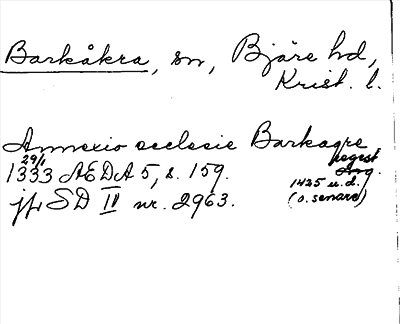 Barkåkra, sn, Bjäre hd,
Krist. l.
Annexio ecclesie Barkagre,
29/1 regest
1333 AEDA 5, s. 159. Avg.
1425 u.d.
jfr SD IV nr. 2963. (o. senare)